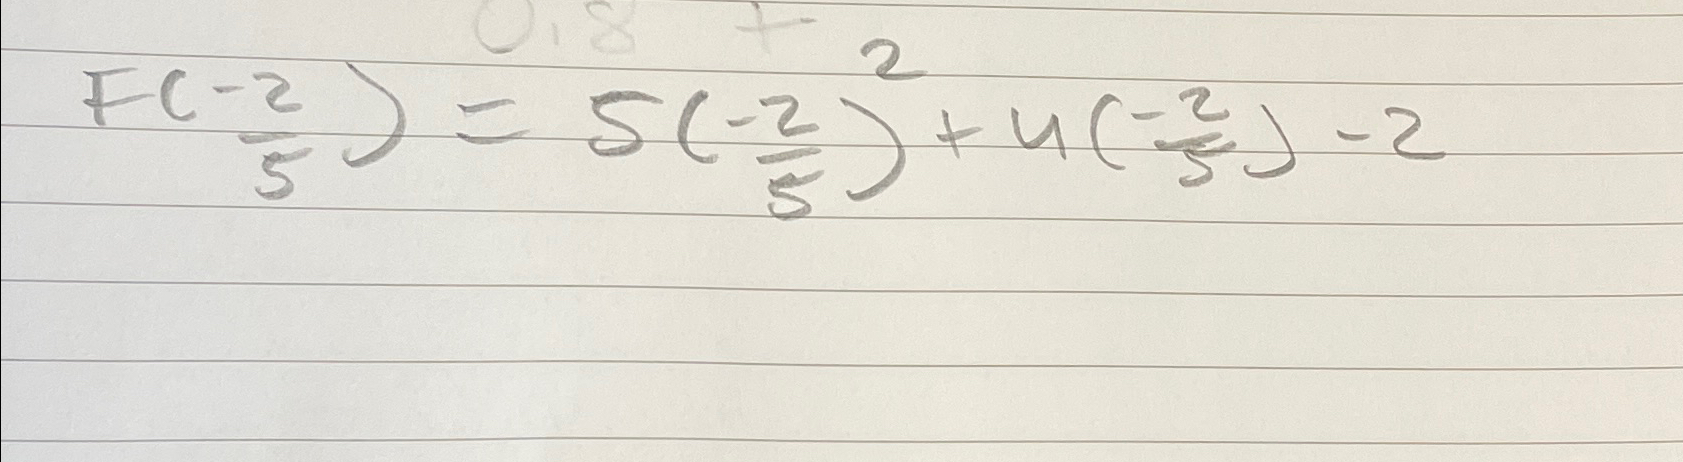 0.8 +
F(-2/5) = 5(-2/5)² + 4(-2/5) - 2